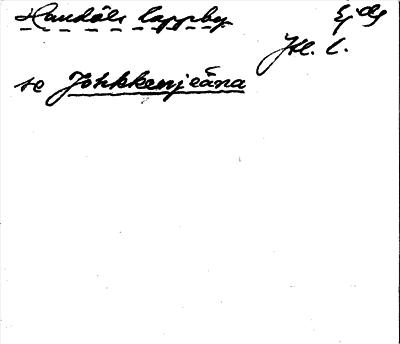 Handöls lappby Ej dg
Jtl. l.
se Johkkenjeäna